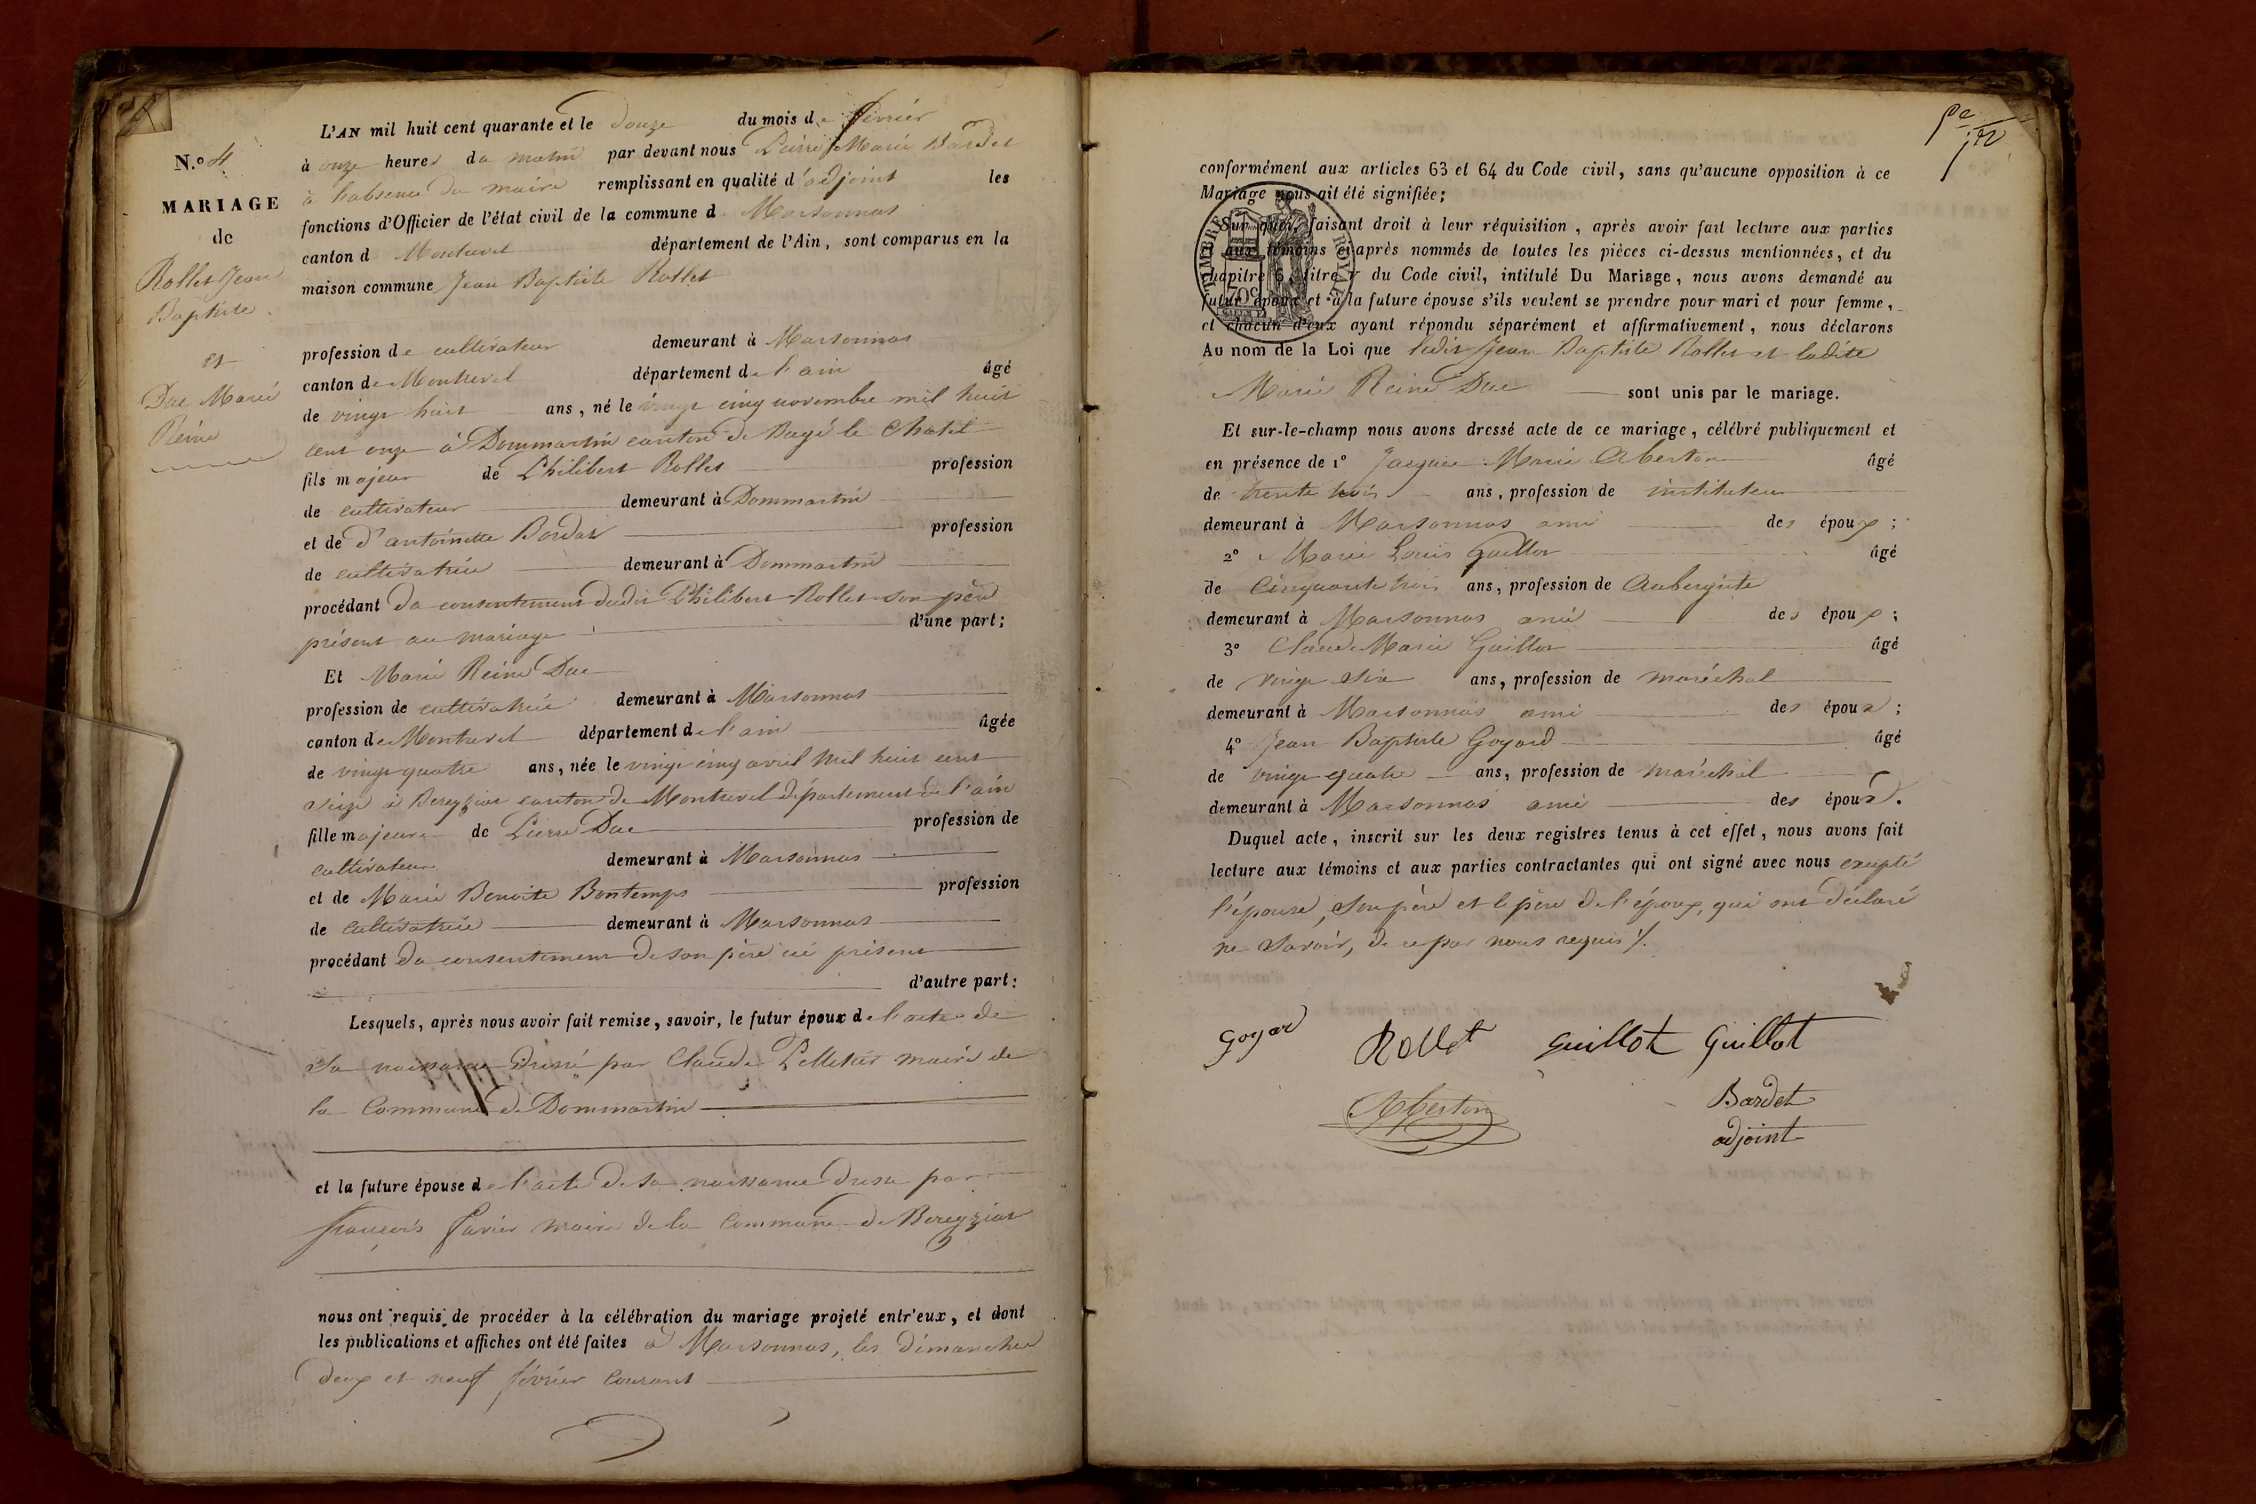 N.o 4
MARIAGE
de
Rollet Jean
Baptiste
et
Duc Marie
Reine
L'AN mil huit cent quarante et le douze du mois de février
à onze heures du matin par devant nous Pierre Marie Bardet
à l'absence du maire remplissant en qualité d'adjoint les
fonctions d'Officier de l'état civil de la commune d Marsonnas
canton d Montrevel département de l'Ain, sont comparus en la
maison commune Jean Baptiste Rollet
profession de cultivateur demeurant à Marsonnas
canton de Montrevel département de l'ain âgé
de vingt huit ans, né le vingt cinq novembre mil huit
cent onze à Dommartin canton de Bagé le Chatel
fils majeur de Philibert Rollet profession
de cultivateur demeurant à Dommartin
et de d'antoinette Bordat profession
de cultivatrice demeurant à Dommartin
procédant du consentement dudit Philibert Rollet son père
présent au mariage d'une part;
Et Marie Reine Duc
profession de cultivatrice demeurant à Marsonnas
canton de Montrevel département de l'ain âgée
de vingt quatre ans, née le vingt cinq avril mil huit cent
seize à Bereyziat canton de Montrevel département de l'ain
fille majeure de Pierre Duc profession de
cultivateur demeurant à Marsonnas
et de Marie Benoite Bontemps profession
de cultivatrice demeurant à Marsonnas
procédant du consentement de son père ici présent
d'autre part:
Lesquels, après nous avoir fait remise, savoir, le futur époux de l'acte de
sa naissance dressé par Claude Pelletier maire de
la Commune de Dommartin
et la future épouse de l'acte de sa naissance dressé par
françois favier maire de la Commune de Bereyziat
nous ont requis de procéder à la célébration du mariage projeté entr'eux, et dont
les publications et affiches ont été faites à Marsonnas, les dimanches
deux et neuf février courant
conformément aux articles 63 et 64 du Code civil, sans qu'aucune opposition à ce
Mariage nous ait été signifiée;
Sur quoi, faisant droit à leur réquisition, après avoir fait lecture aux parties
aux témoins ci-après nommés de toutes les pièces ci-dessus mentionnées, et du
chapitre 6, titre V du Code civil, intitulé Du Mariage, nous avons demandé au
futur époux et à la future épouse s'ils veulent se prendre pour mari et pour femme,
et chacun d'eux ayant répondu séparément et affirmativement, nous déclarons
Au nom de la Loi que ledit Jean Baptiste Rollet et ladite
Marie Reine Duc sont unis par le mariage.
Et sur-le-champ nous avons dressé acte de ce mariage, célébré publiquement et
en présence de 1o Jacques Marie Aberton âgé
de trente trois ans, profession de instituteur
demeurant à Marsonnas ami des époux;
2o Marie Louis Guillot âgé
de Cinquante trois ans, profession de Aubergiste
demeurant à Marsonnas ami des époux;
3o Claude Marie Guillot âgé
de vingt six ans, profession de maréchal
demeurant à Marsonnas ami des époux;
4o Jean Baptiste Goyard âgé
de vingt quatre ans, profession de maréchal
demeurant à Marsonnas ami des époux.
Duquel acte, inscrit sur les deux registres tenus à cet effet, nous avons fait
lecture aux témoins et aux parties contractantes qui ont signé avec nous excepté
l'épouse, son père et le père de l'époux, qui ont déclaré
ne savoir, de ce par nous requis
TIMBRE ROYAL
70c
goyar Rollet guillot guillot
Aberton Bardet
adjoint